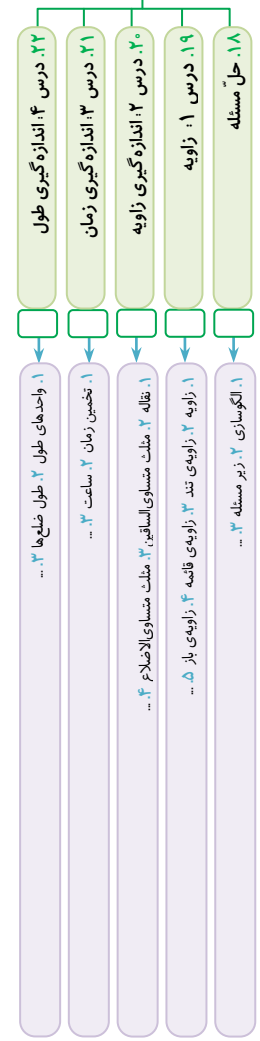 ۱۸. حلّ مسئله
۱. الگوسازی ۲. زیر مسئله ۳. ...
۱۹. درس ۱: زاویه
۱. زاویه ۲. زاویه‌ی تند ۳. زاویه‌ی قائمه ۴. زاویه‌ی باز ۵. ...
۲۰. درس ۲: اندازه‌گیری زاویه
۱. نقاله ۲. مثلث متساوی‌الساقین ۳. مثلث متساوی‌الاضلاع ۴. ...
۲۱. درس ۳: اندازه‌گیری زمان
۱. تخمین زمان ۲. ساعت ۳. ...
۲۲. درس ۴: اندازه‌گیری طول
۱. واحدهای طول ۲. طول ضلع‌ها ۳. ...